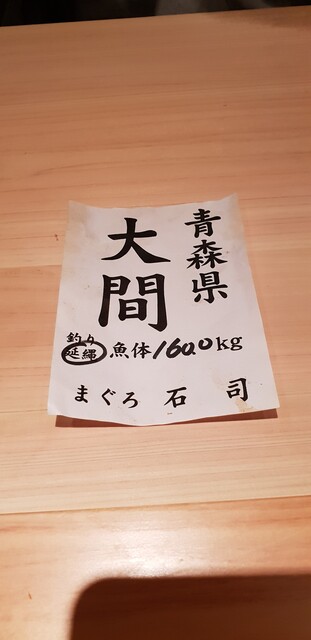 青森県
大間
釣り
延縄 魚体160.0kg
まぐろ 石司